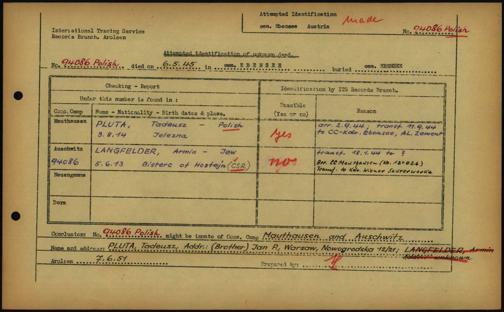 Attempted Identification
made
cem. Ebensee Austria
No. 94086 Polish
International Tracing Service
Records Branch. Arolsen
Attempted identification of unknown dead
No. 94086 Polish died on 6.5.45 in cem. EBENSEE buried cem. EBENSEE
Checking - Report
Identification by ITS Records Branch.
Under this number is found in :
Feasible (Yes or no)
Reason
Conc. Camp Name - Nationality - Birth dates & place.
Mauthausen PLUTA, Tadeusz - Polish
3.8.14 Jelezna
yes
arr. 2.9.44; transf. 11.9.44
to CC-Kdr. Ebensee, AL Zement
Auschwitz LANGFELDER, Armin - Jew
94086 5.6.13 Bistare of Hostejn (CSR)
no
transf. 18.1.44 to ?
Arr. CC Mauthausen
Transf. to Kdr. Wiener
Neuengamme
Dora
Conclusion: No. 94086 Polish might be inmate of Conc. Camp Mauthausen and Auschwitz
Name and address: PLUTA, Tadeusz, Addr.: (Brother) Jan P., Warsaw, Nowogrodska 12/21; LANGFELDER, Armin
unknown
Arolsen 7.6.51 Prepared by: